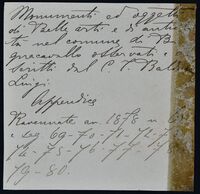 Monumenti ed oggetti
di Belle arti e di antichi
tà nel comune di B
gnacavallo osservati e
scritti dal C. T. Bald
Luigi
Appendice
Ravennate an. 1878 n 65
e seg 69-70-71-72-7
74-75-76-77-78
79-80.